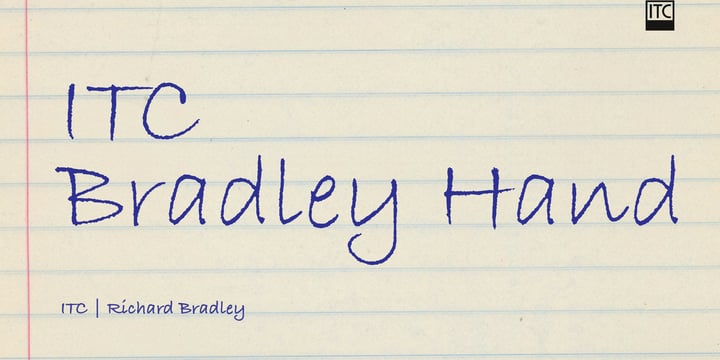 ITC
ITC
Bradley Hand
ITC | Richard Bradley